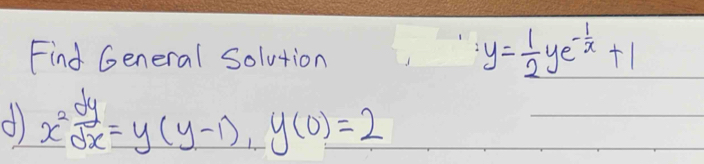 Find General Solution
: y = 1/2 ye^(-1/x) + 1
d) x² dy/dx = y(y-1), y(0) = 2